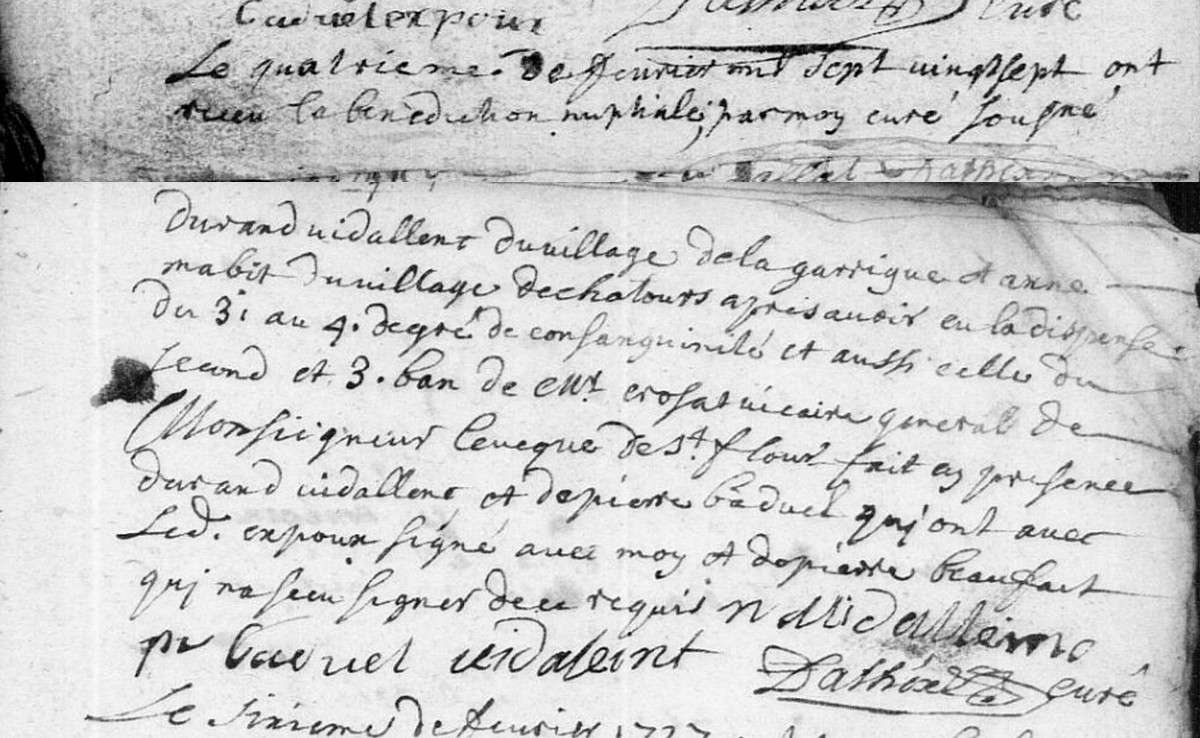 Baduel expoux curé
Le quatrieme de feuvrier mil sept vingtsept ont
receu la benediction nuptiale, par moy curé sousgné
durand vidallenc du village de la garrigue et anne
mabit du village de chalours apres avoir eu la dispense
du 3. au 4. degré de consanguinité et aussi celle du
second et 3. ban de Mr. crosat vicaire general de
Monseigneur leveque de st. flour fait en presence
durand vidallenc et de pierre baduel quj ont avec
led. expoux signé avec moy et de pierre beaufact
quj na sceu signer de ce requis n vidallainc
pr Baduel vidaleint Dathoxel curé
Le sixieme de feuvrier 1727